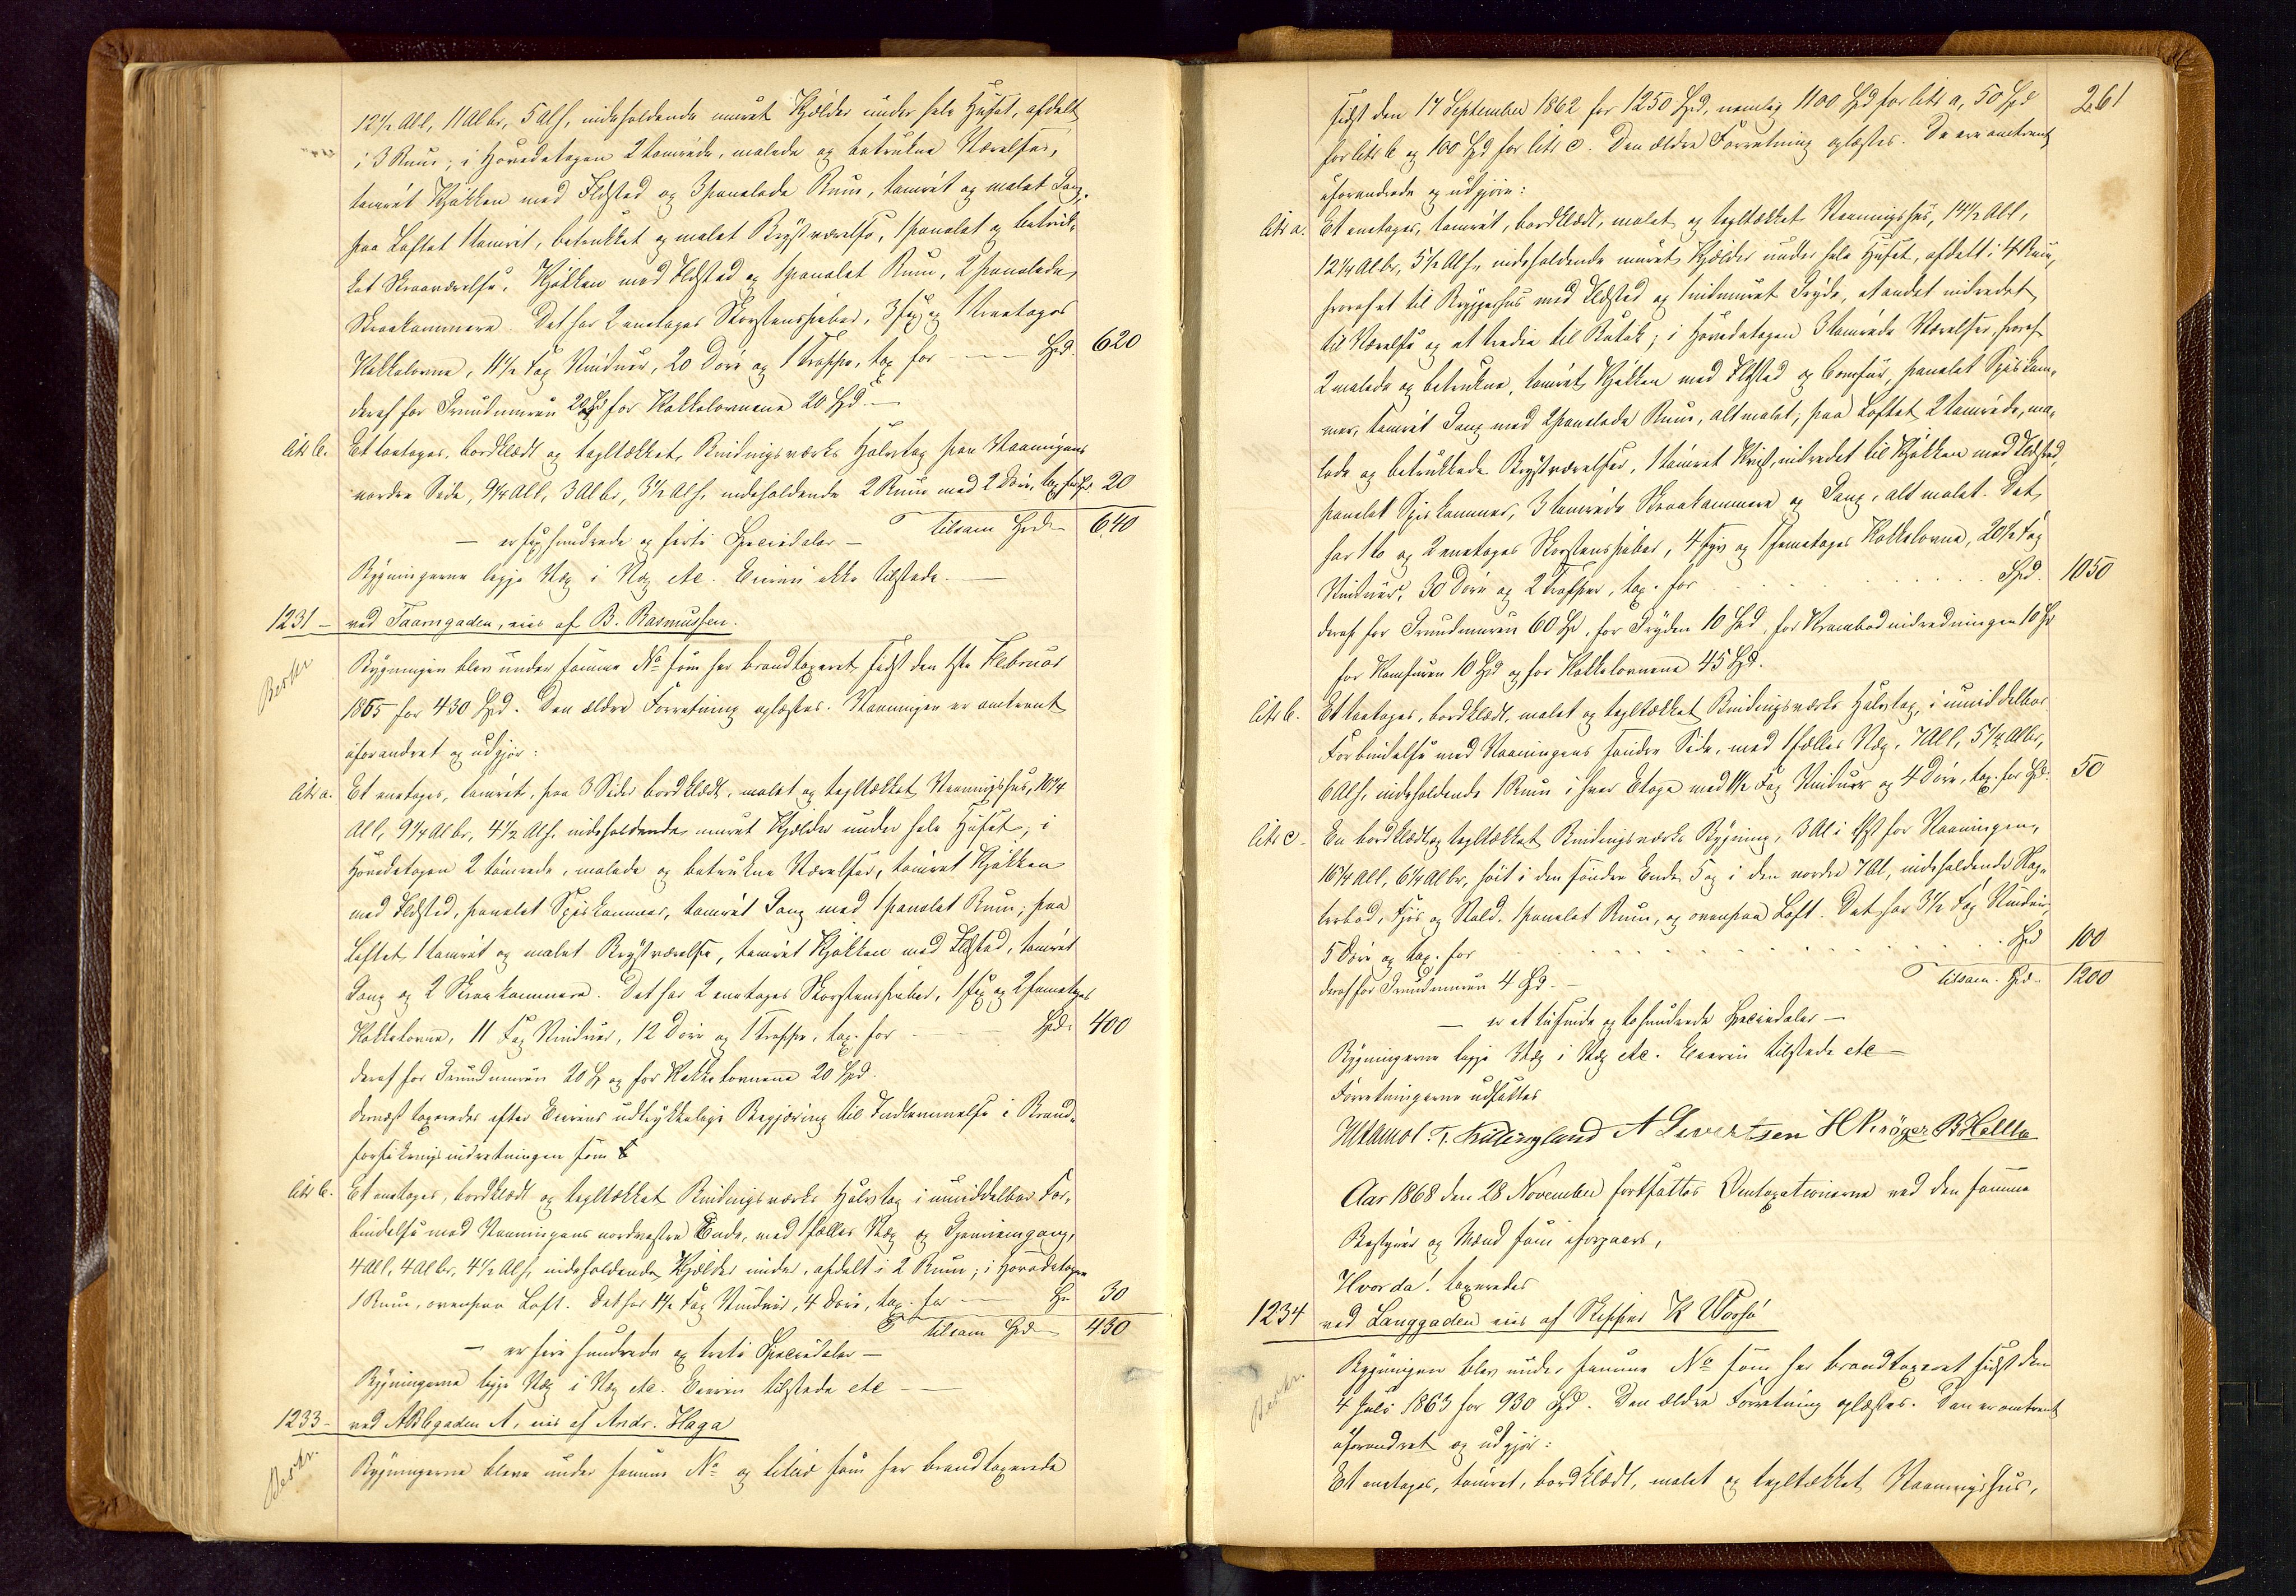 12½ All, 11 Al br, 5 Al h, indeholdende muret Kjælder under hele Huset, afdelt
i 3 Rum; i Hovedetagen 2 tømrede, malede og betrukne Værelser,
tømret Kjøkken med Ildsted og 3 panelede Rum, tømret og malet Gang;
paa Loftet 1 tømret, betrukket og malet Brystværelse, 1 panelet og betruk-
ket Skraaværelse, Kjøkken med Ildsted og 1 panelet Rum, 2 panelede
Skraakammere. Det har 2 enetages Skorstenspiber, 3 og 1 treetages
Kakkelovne, 11½ Fag Vinduer, 20 Døre og 1 Trappe, tax for Spd. 620
deraf for Grundmuren 20 Spd for Kakkelovnene 20 Spd.
litr b. Et toetages, bordklædt og tegltækket Bindingsværks Halvtag paa Vaaningens
nordre Side, 9¼ All, 3 Al br, 3½ Al h, indeholdende 2 Rum med 2 Døre, tax for Sp. 20
tilsam Spd 640
— er sex hundrede og firti Speciedaler —
Bygningerne ligge Væg i Væg etc. Eieren ikke tilstede.
1231 — ved Taarngaden, eies af B. Rasmussen.
Beskr
Bygningen blev under samme No som her brandtaxeret sidst den 1ste Februar
1865 for 430 Spd. Den ældre Forretning oplæstes. Vaaningen er omtrent
uforandret og udgjør:
litr a. Et enetages, tømret, paa 3 Sider bordklædt, malet og tegltækket Vaaningshus, 10¼
All, 9¼ Al br, 4½ Al h. indeholdende muret Kjælder under hele Huset; i
Hovedetagen 2 tømrede, malede og betrukne Værelser, tømret Kjøkken
med Ildsted, panelet Spiskammer, tømret Gang med 1 panelet Rum; paa
Loftet 1 tømret og malet Brystværelse, tømret Kjøkken med Ildsted, tømret
Gang og 2 Skraakammere. Det har 2 enetages Skorstenspiber, 1 og 2 femetages
Kakkelovne, 11 Fag Vinduer, 12 Døre og 1 Trappe, tax. for Spd. 400
deraf for Grundmuren 20 Sp og for Kakkelovnene 20 Spd.
dernæst taxeredes efter Eierens udtrykkelige Begjæring til Indlemmelse i Brand-
forsikringsindretningen som
litr b. Et enetages, bordklædt og tegltækket Bindingsværks Halvtag i umiddelbar For-
bindelse med Vaaningens nordvestre Ende, med fælles Væg og Gjennemgang,
4 All, 4 Al br, 4½ Al h, indeholdende Kjælder under, afdelt i 2 Rum; i Hovedetagen
1 Rum, ovenpaa Loft. Det har 1½ Fag Vinduer, 4 Døre, tax. for Sp 30
tilsam Spd 430
— er fire hundrede og treti Speciedaler —
Bygningerne ligge Væg i Væg etc. Eieren tilstede etc —
1233 — ved ABCgaden A, eies af Andr. Haga
Beskr.
Bygningerne bleve under samme No og litra som her brandtaxerede
261
sidst den 17 September 1862 for 1250 Spd, nemlig 1100 Spd for litr a, 50 Spd
for litr b og 100 Spd for litr c. Den ældre Forretning oplæstes. De ere omtrent
uforandrede og udgjøre:
litr a. Et enetages, tømret, bordklædt, malet og tegltækket Vaaningshus, 14½ All,
12¼ Al br, 5½ Al h, indeholdende muret Kjælder under hele Huset, afdelt i 4 Rum,
hvoraf et til Bryggerhus med Ildsted og 1 indmuret Gryde, et andet indredet
til Værelse og et tredie til Butik; i Hovedetagen 3 tømrede Værelser, hvoraf
2 malede og betrukne, tømret Kjøkken med Ildsted og Comfur, panelet Spiskam-
mer, tømret Gang med 2 panelede Rum, alt malet; paa Loftet 2 tømrede, ma-
lede og betrukkede Brystværelser, 1 tømret Kvist, indredet til Kjøkken med Ildsted,
panelet Spiskammer, 3 tømrede Skraakammere og Gang, alt malet. Det
har 1 to og 2 enetages Skorstenspiber, 4 og 1 femetages Kakkelovne, 20½ Fag
Vinduer, 30 Døre og 2 Trapper, tax. for Spd. 1050
deraf for Grundmuren 60 Spd, for Gryden 10 Spd, for Krambodindredningen 10 Sp
for Komfuren 10 Spd og for Kakkelovnene 45 Spd.
litr b. Et toetages, bordklædt, malet og tegltækket Bindingsværks Halvtag, i umiddelbar
Forbindelse med Vaaningens søndre Side, med fælles Væg, 7 All, 5¼ Al br,
6 Al h, indeholdende 1 Rum i hver Etage med 1½ Fag Vinduer og 4 Døre, tax. for Spd. 50
litr c. En bordklædt og tegltækket Bindingsværks Bygning, 3 Al i Øst for Vaaningen,
16¼ All, 6¼ Al br, høit i den søndre Ende 5 og i den nordre 7 Al, indeholdende Slag-
terbod, Fjøs og Stald. 1 panelet Rum, og ovenpaa Loft. Det har 3½ Fag Vinduer,
5 Døre og tax. for Spd 100
deraf for Grundmuren 4 Spd. — tilsam. Spd. 1200
— er et tusinde og tohundrede Speciedaler —
Bygningerne ligge Væg i Væg etc. Eieren tilstede etc —
Forretningerne udsattes
T. Killingland A Sivertsen H Krøger B Helle
Aar 1868 den 28 November fortsattes Omtaxationerne ved den samme
Bestyrer og Mænd som iforgaars,
Hvorda! taxeredes
1234 ved Langgaden eies af Skipper K Worsø
Beskr.
Bygningen blev under samme No som her brandtaxeret sidst den
4 Juli 1863 for 930 Spd. Den ældre Forretning oplæstes. Den er omtrent
uforandret og udgjør:
Et enetages, tømret, bordklædt, malet og tegltækket Vaaningshus,